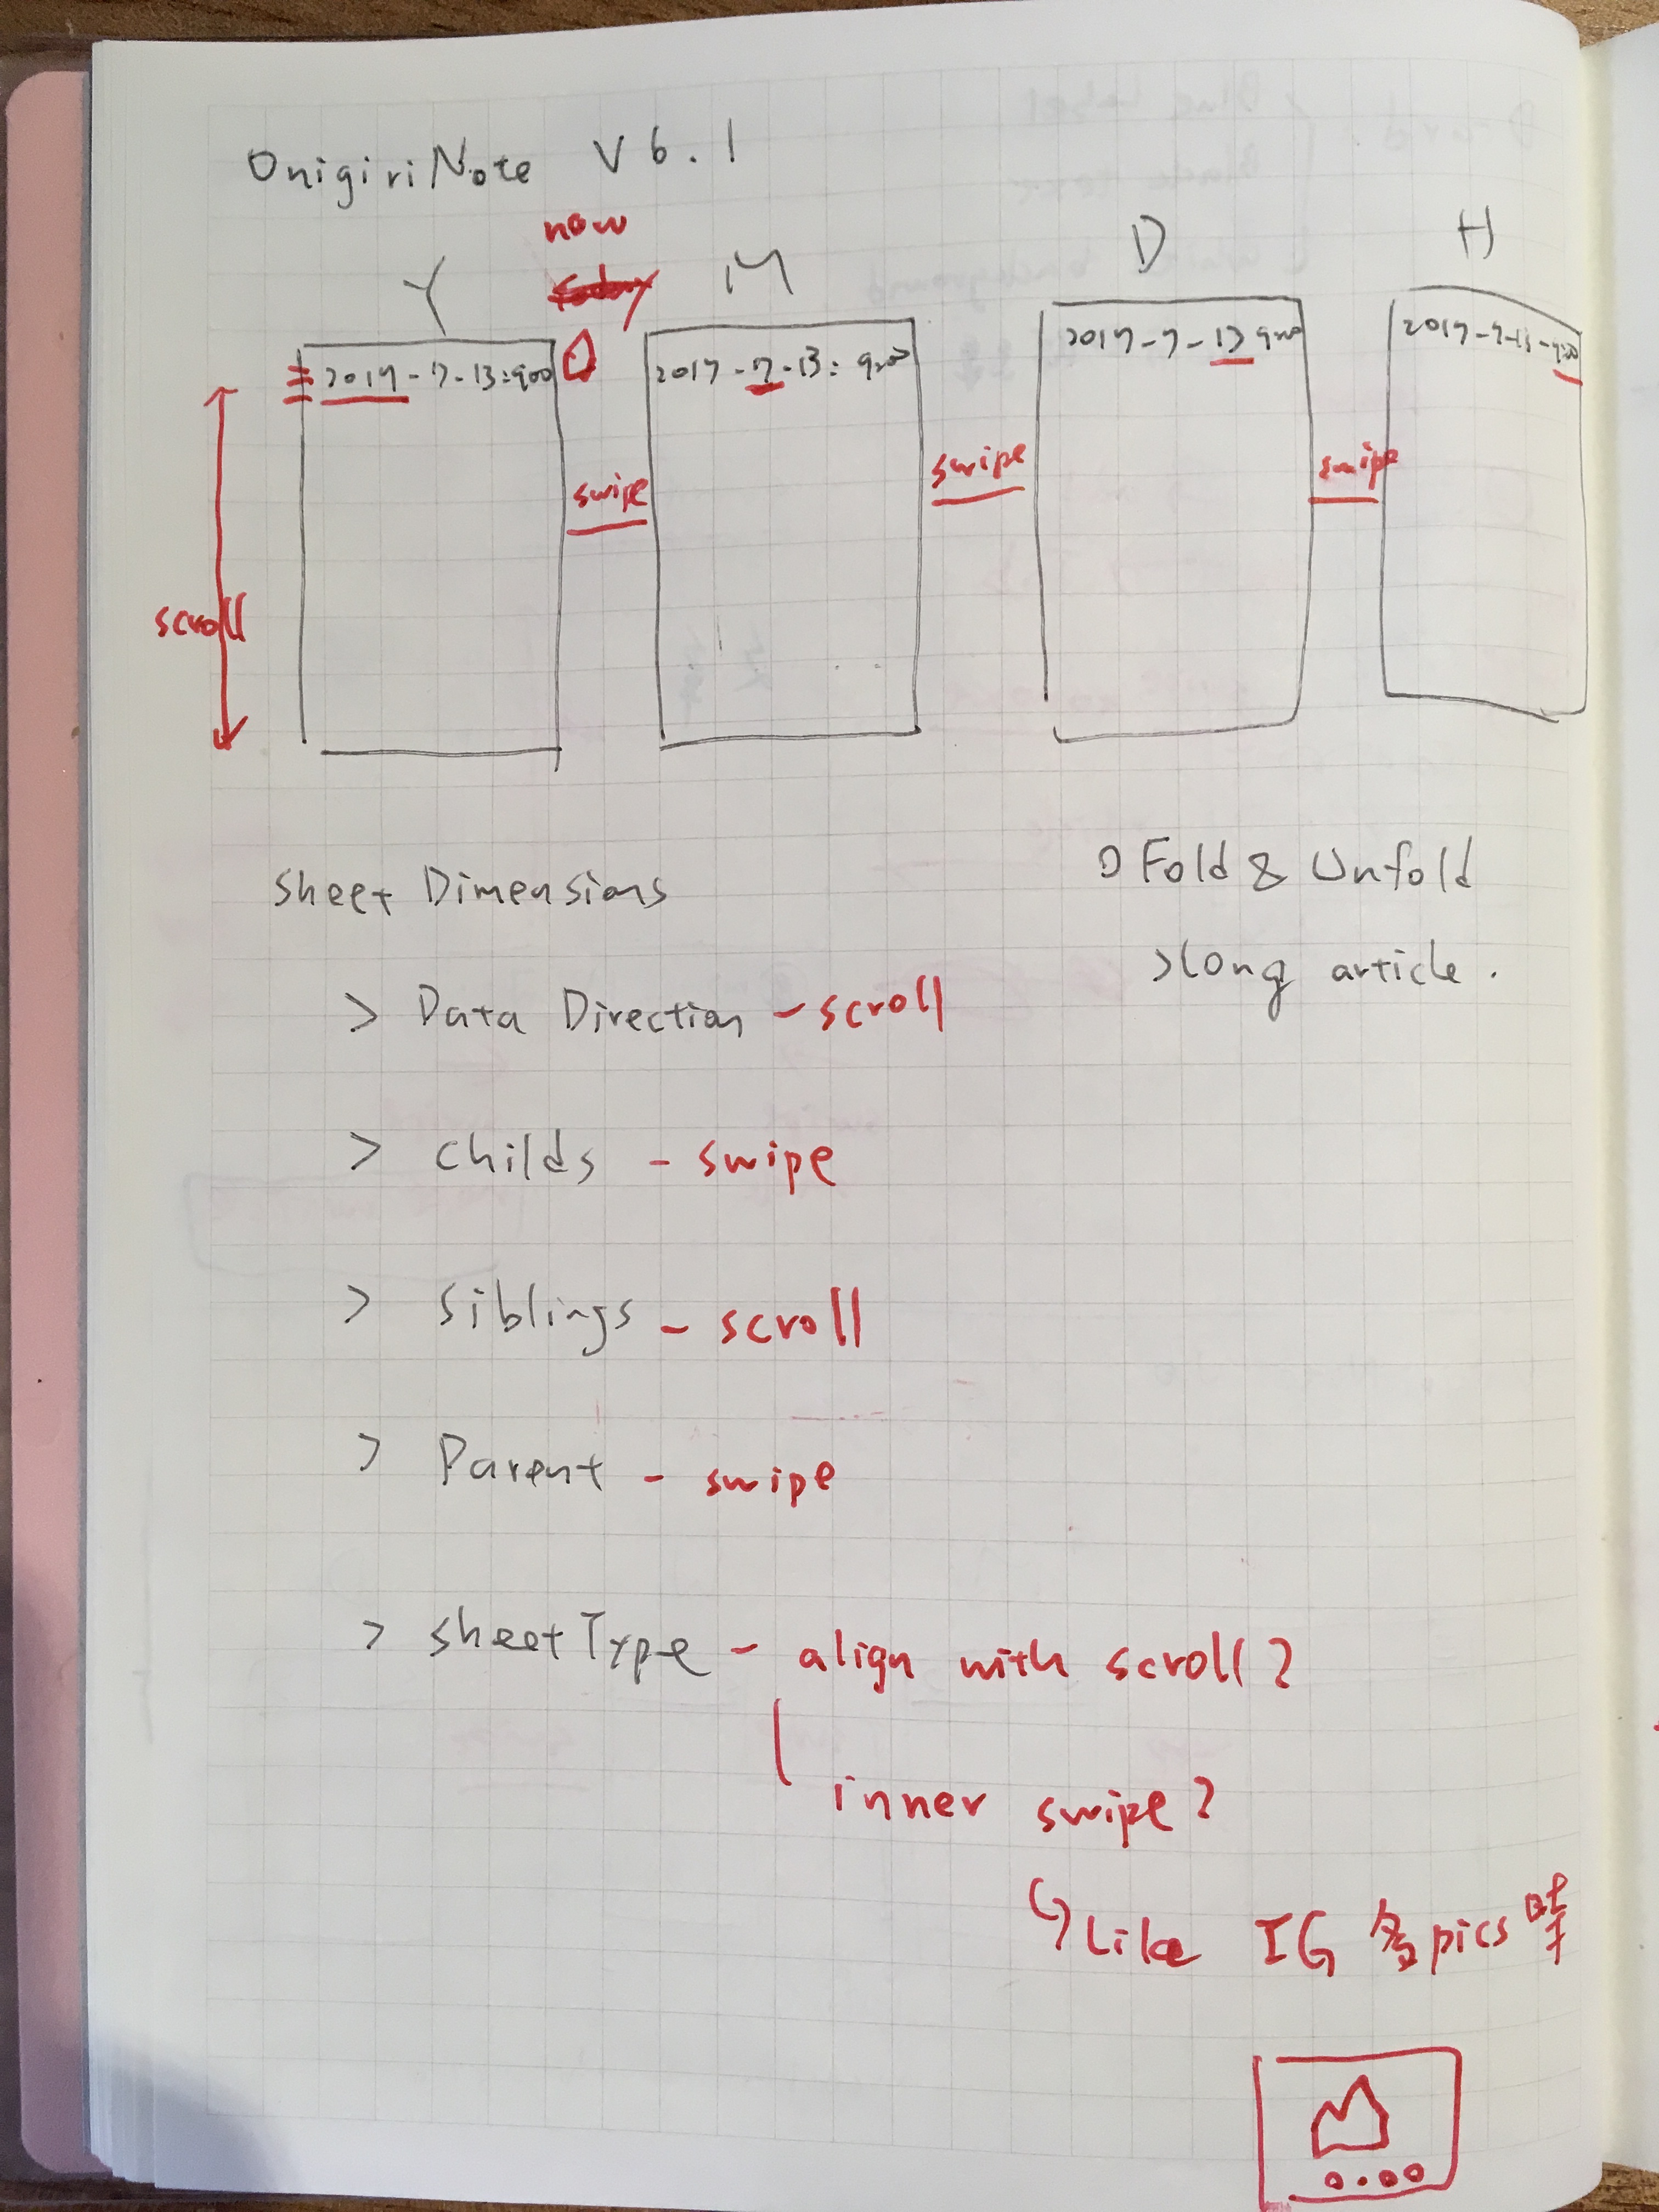 OnigiriNote V6.1
now
today
Y M D H
2017-7-13:900
2017-7-13:900
2017-7-13 900
2017-7-13-900
swipe
swipe
swipe
scroll
Sheet Dimensions
> Data Direction - scroll
> childs - swipe
> siblings - scroll
> Parent - swipe
> sheetType - align with scroll?
inner swipe?
↳ Like IG 多pics時
Fold & Unfold
> long article.